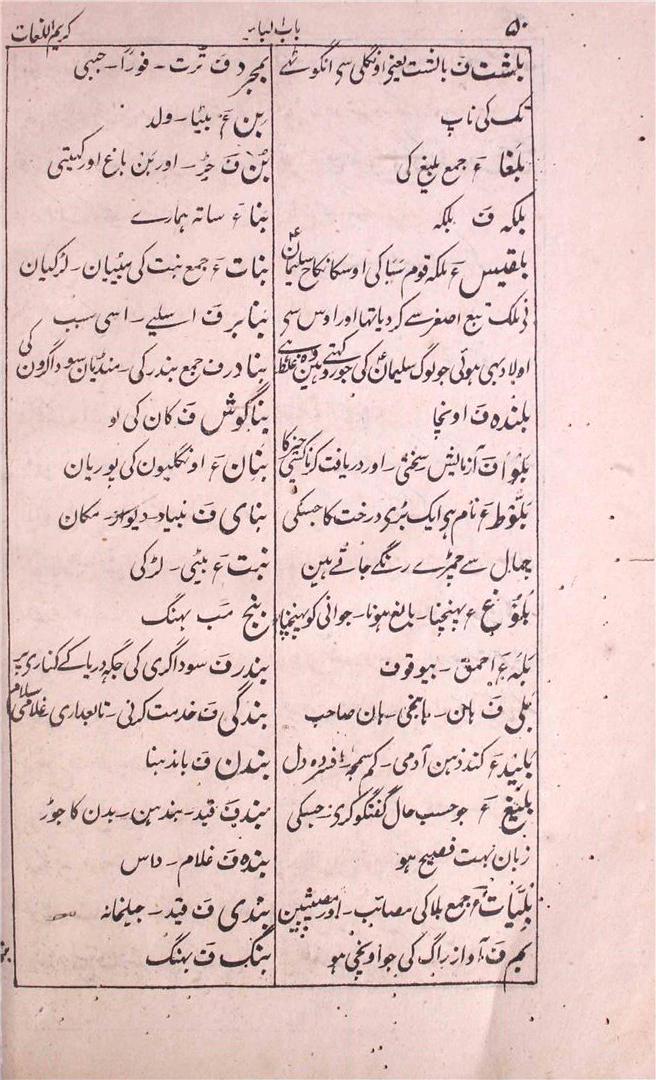 ۵۰ باب البا۔ کریم اللغات
بلشت ف بالشت یعنی اونگلی سی انگوٹہے
تک کی ناپ
بلغا ء جمع بلیغ کی
بلکہ ف بلکہ
بلقیس ء ملکہ قوم سبا کی اوسکا نکاح سلیمانؑ
نی ملک تبع اصغر سے کر دیا تہا اور اوس سی
اولاد بہی ہوئی جو لوگ سلیمانؑ کی جورو کہتے ہین وہ غلط ہے
بلندہ ف اونچا
بلوا ف آزمایش سختی۔ اور دریافت کرنا کسی چیز کا
بلّوط ء نام ہی ایک بُری درخت کا جسکی
چہال سے چمڑے رنگے جاتے ہین
بلُوغ ء پہنچنا۔ بالغ ہونا۔ جوانی کو پہنچنا
بلہ ء احمق۔ بیوقوف
بلی ف ہان۔ ہانجی۔ ہان صاحب
بلید ء کند ذہن آدمی۔ کم سمجہ۔ افسردہ دل
بلیغ ء جو حسب حال گفتگو کری۔ جسکی
زبان بہت فصیح ہو
بلیّات ء جمع بلا کی مصائب۔ اور مصیبتین
بم ف آواز راگ کی جو اونچی ہو
بمجرد ف تُرت۔ فوراً۔ جبہی
بن ء بیٹا۔ ولد
بُن ف جڑ۔ اور بَن باغ اور کہیتی
بنا ء ساتہ ہمارے
بنات ء جمع بنت کی بیٹیان۔ لڑکیان
بنا بر ف اسلیے۔ اسی سبب
بنادر ف جمع بندر کی۔ منڈیان سوداگرون کی
بناگوش ف کان کی لو
بنان ء اونگلیون کی پوریان
بنای ف بنیاد۔ دیوار۔ مکان
بنت ء بیٹی۔ لڑکی
بنج مب بہنگ
بندر ف سوداگری کی جگہ دریا کے کناری پر
بندگی ف خدمت کرنی۔ تابعداری غلامی سلام
بندن ف باندہنا
بند ف قید۔ بندہن۔ بدن کا جوڑ
بندہ ف غلام۔ داس
بندی ف قید۔ جیلخانہ
بنگ ف بہنگ